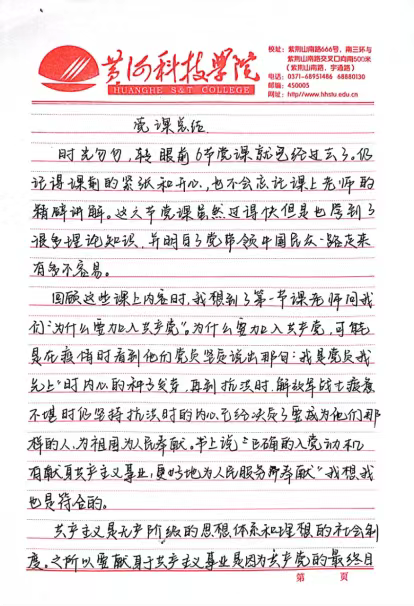 黄河科技学院
HUANGHE S&T COLLEGE
校址：紫荆山南路666号，南三环与
紫荆山南路交叉口向南500米
（紫荆山南路，宇通路）
电话：0371-68951486 68880130
邮编：450005
网址：http://www.hhstu.edu.cn
党课总结
时光匆匆，转眼前6节党课就已经过去了。仍
记得课前的紧张和开心，也不会忘记课上老师的
精辟讲解。这六节党课虽然过得快但是也学到了
很多理论知识，并明白了党带领中国民众一路走来
有多不容易。
回顾这些课上内容时，我想到了第一节课老师问我
们：为什么要加入共产党"。为什么要加入共产党，可能
是在疫情时看到他们党员坚定说出那句："我是党员我
先上"时内心的种子发芽，再到抗洪时，解放军战士疲惫
不堪时仍坚持抗洪时的内心已经决定了要成为他们那
样的人，为祖国为人民奉献。书上说"正确的入党动机
有献身共产主义事业，更好地为人民服务所奉献"我想我
也是符合的。
共产主义是无产阶级的思想体系和理想的社会制
度。之所以要献身于共产主义事业是因为共产党的最终目
第 页